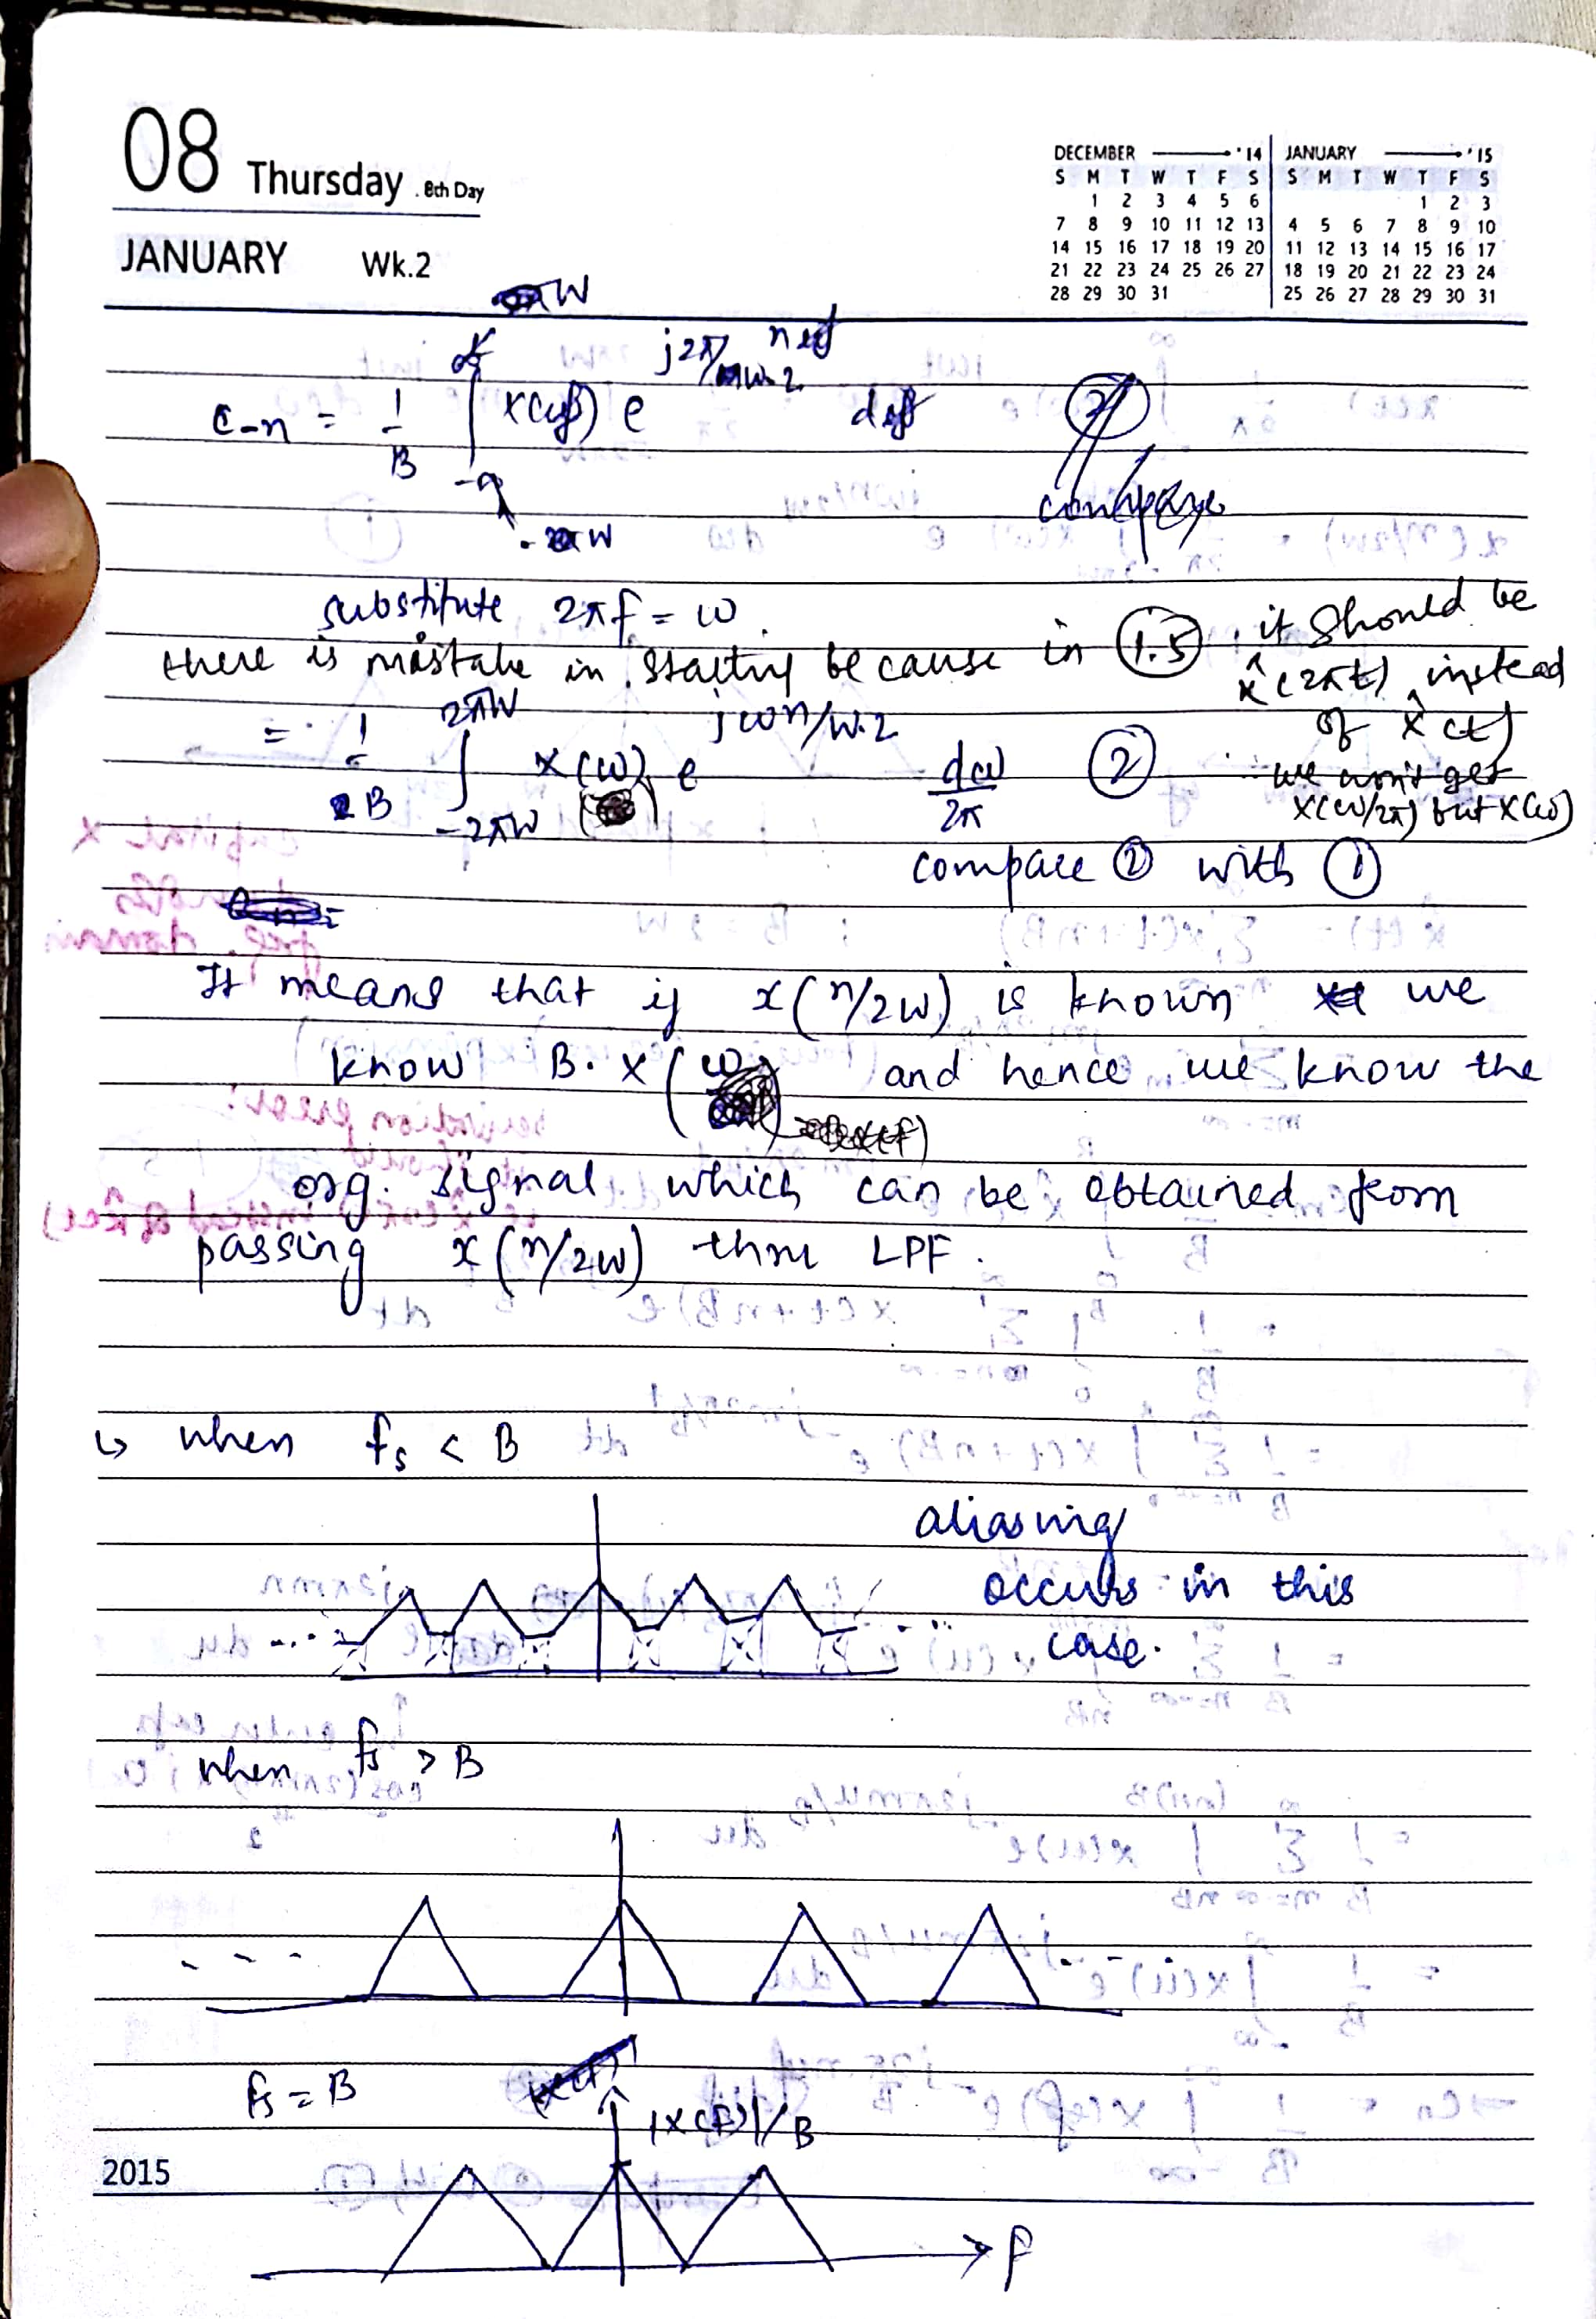 08 Thursday . 8th Day
JANUARY Wk.2
DECEMBER '14
S M T W T F S
1 2 3 4 5 6
7 8 9 10 11 12 13
14 15 16 17 18 19 20
21 22 23 24 25 26 27
28 29 30 31
JANUARY '15
S M T W T F S
1 2 3
4 5 6 7 8 9 10
11 12 13 14 15 16 17
18 19 20 21 22 23 24
25 26 27 28 29 30 31
W
c-n = 1/B ∫ x( ) e j2π n /W.2 d
-W
compare
substitute 2πf = ω.
there is mistake in starting because in (1.5), it should be
x̂(2πt) instead
of x̂(t)
∴ we won't get
X(ω/2π) but X(ω)
= 1/B ∫ 2πW -2πW X(ω) e jωn/W.2 dω/2π (2)
compare (2) with (1)
It means that if x(n/2W) is known we
know B. X(ω) and hence we know the
org. signal which can be obtained from
passing x(n/2W) thru LPF.
↳ when fs < B
aliasing
occurs in this
case.
when fs > B
fs = B
|X(f)|/B
f
2015